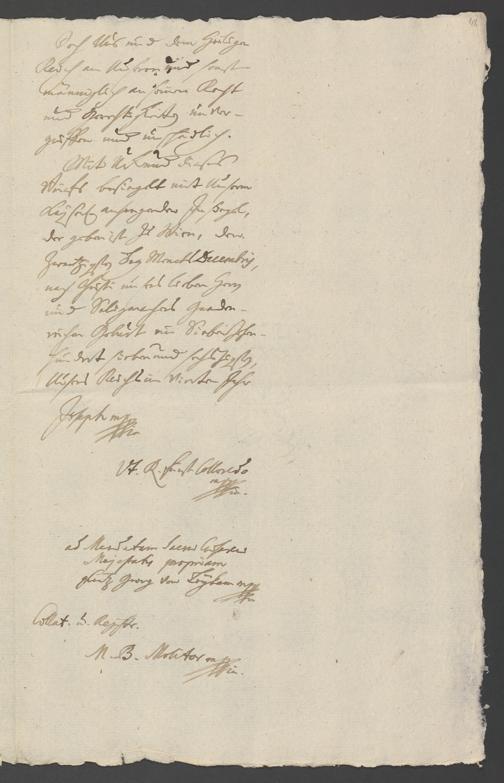 Doch Uns und dem Heiligen
Reich an Unseren und sonst
männiglich an seinem Recht
und Gerechtigkeiten unver-
griffen und unschädlich.
Mit Urkund dieses
Briefs besiegelt mit Unserm
Kayserl. anhangenden Insiegel,
der geben ist zu Wien, den
Zwantzigsten Tag Monats Decembris,
nach Christi unsers lieben Herrn
und Seligmachers Gnaden-
reichen Geburt im Siebenzehen-
hundert sieben und sechszigsten,
Unsers Reichs im Vierten Jahr
Joseph mppria
Vt. R. Fürst Colloredo
mppria.
ad Mandatum Sacrae Caesareae
Majestatis proprium
Frantz Georg von Leykam mppria
Collat. & Registr.
M. B. Molitor mppria.